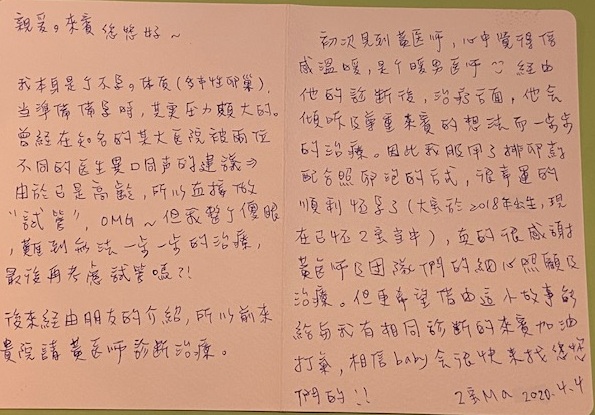 親愛。來賓 您您好～
我本身是个不孕。体質(多囊性卵巢)，
當準備備孕時，其實压力頗大的。
曾經在知名的某大医院被兩位
不同的医生異口同声的建議⇒
由於已是高齡，所以直接做
"試管"，OMG～但我整个傻眼
，難到無法一步一步的治療，
最後再考慮試管嗎?!
後來經由朋友的介紹，所以前來
貴院請黃医师診断治療。
初次見到黃医师，心中覺得倍
感溫暖，是个暖男医师 經由
他的診断後，治療方面，他会
傾听及尊重來賓的想法而一步步
的治療。因此我服用了排卵葯
配合照卵泡的方式，很幸運的
順利怀孕了(大寶於2018年出生，現
在已怀2寶当中)，真的很感謝
黃医师及团隊們的細心照顧及
治療。但更希望借由這小故事能
給与我有相同診断的來賓加油
打氣，相信baby会很快來找您您
們的!! 2寶Ma 2020.4.4